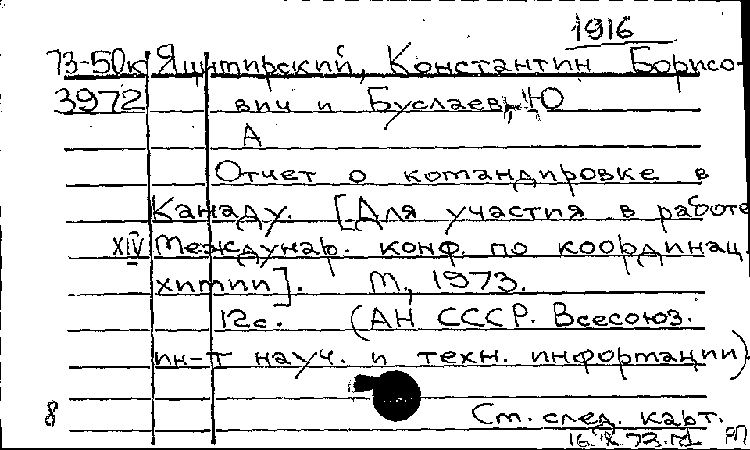 1916
73-50к Яцимирский, Константин Борисо-
3972 вич и Буслаев, Ю
А
Отчет о командировке в
Канаду. [Для участия в работе
XIV Междунар. конф. по координац.
химии]. М., 1973.
12с. (АН СССР. Всесоюз.
ин-т науч. и техн. информации).
8 См. след. карт.